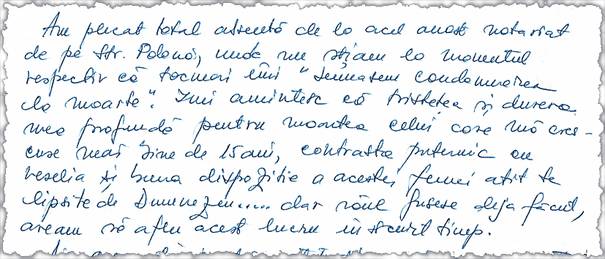 Am plecat total absentă de la acel anost notariat
de pe Str. Polonă, unde nu știam la momentul
respectiv că tocmai îmi "semnasem condamnarea
la moarte". Îmi amintesc că tristețea și durerea
mea profundă pentru moartea celui care mă cres-
cuse mai bine de 15 ani, contrasta puternic cu
veselia și buna dispoziție a acestei femei atît de
lipsite de Dumnezeu..... dar răul fusese deja făcut,
aveam să aflu acest lucru în scurt timp.